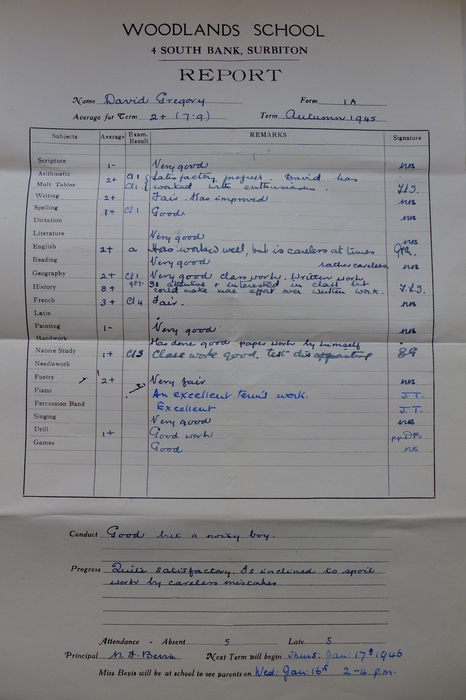 WOODLANDS SCHOOL
4 SOUTH BANK, SURBITON
REPORT
Name David Gregory Form 1A
Average for Term 2+ (7.9) Term Autumn 1945
Subjects Average Exam. Result REMARKS Signature
Scripture 1- Very good
Arithmetic 2+ Cl 1 Satisfactory progress. David has
Mult. Tables Cl 1 worked with enthusiasm.
Writing 2+ Fair. Has improved
Spelling 1+ Cl 1 Good
Dictation
Literature Very good
English 2+ a Has worked well, but is careless at times
Reading Very good rather careless.
Geography 2+ Cl 1 Very good class work. Written work
History 8+ Is attentive & interested in class but
could make more effort over written work.
French 3+ Cl 4 Fair.
Latin
Painting 1- Very good
Handwork Has done good paper work by himself
Nature Study 1+ Cl 3 Class work good. Test disappointing
Needlework
Poetry 2+ Very fair
Piano An excellent term's work. J.T.
Percussion Band Excellent J.T.
Singing Very good
Drill 1+ Good work
Games Good
Conduct Good but a noisy boy.
Progress Quite satisfactory. Is inclined to spoil
work by careless mistakes
Attendance - Absent 5 Late 5
Principal Next Term will begin Thurs: Jan: 17th 1946
Miss Bevis will be at school to see parents on Wed: Jan: 16th 2-4 p.m.